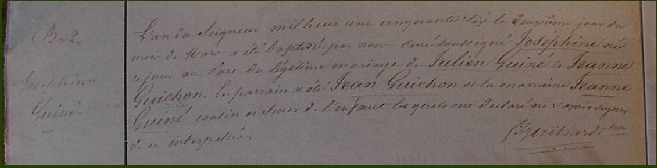 B. 2.
Joséphine
Guiné
L'an du Seigneur mil huit cent cinquante six le deuxième jour du
mois de Mars a été baptisée par nous curé soussigné Joséphine née
ce jour au Parc du légitime mariage de Julien Guiné & Jeanne
Guichon. Le parrain a été Jean Guichon et la marraine Jeanne
Guiné cousin et sœur de l'enfant lesquels ont déclaré ne savoir signer
de ce interpellés.